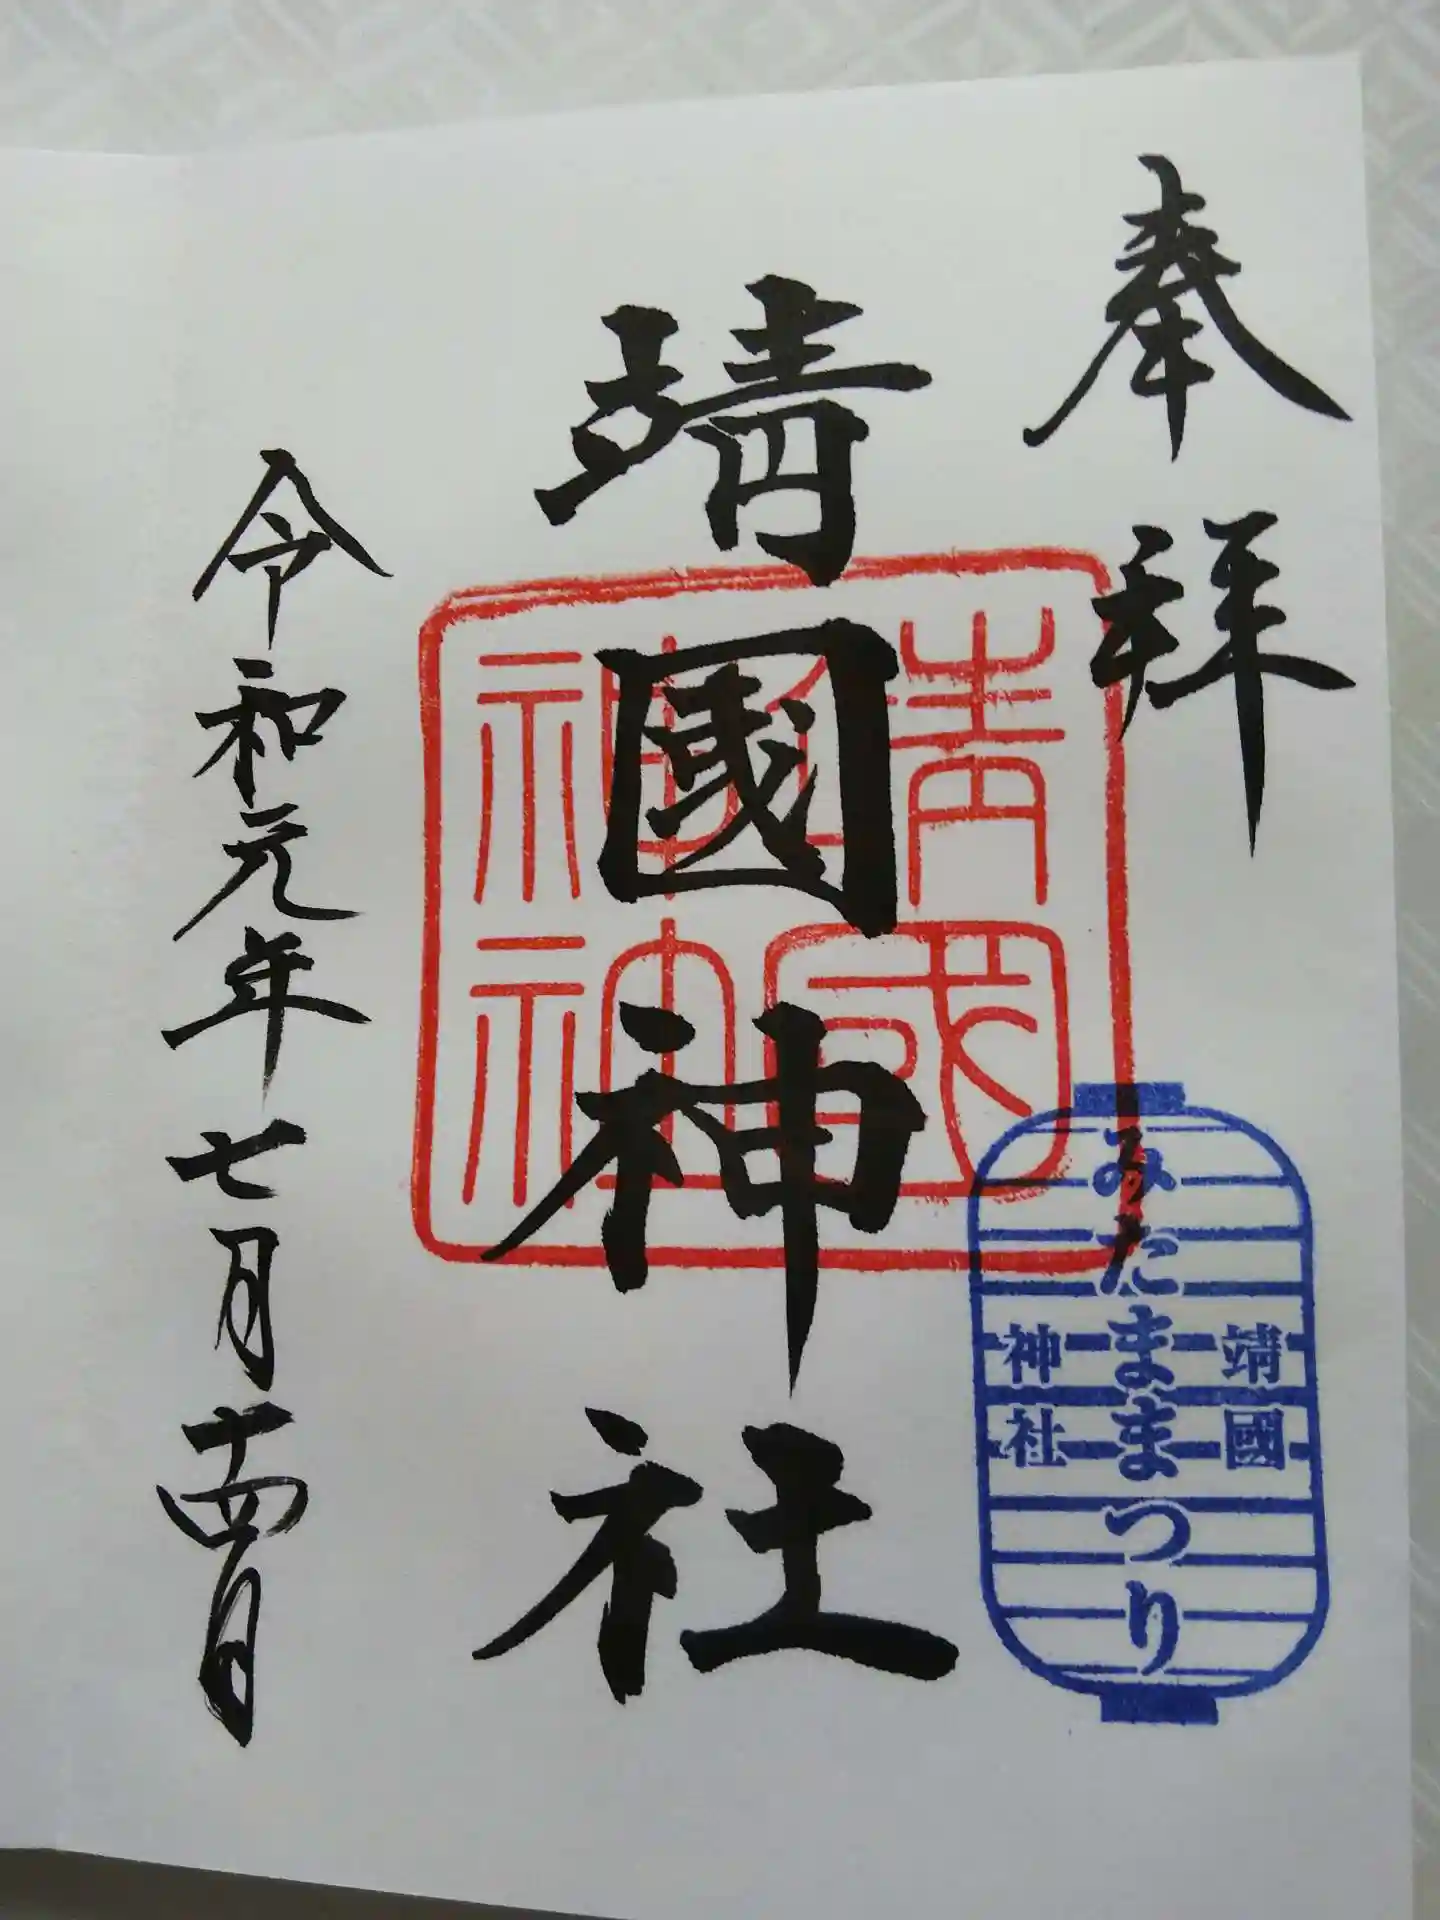 奉拝
靖國神社
靖國神社
靖國
みたままつり
神社
令和元年七月十四日